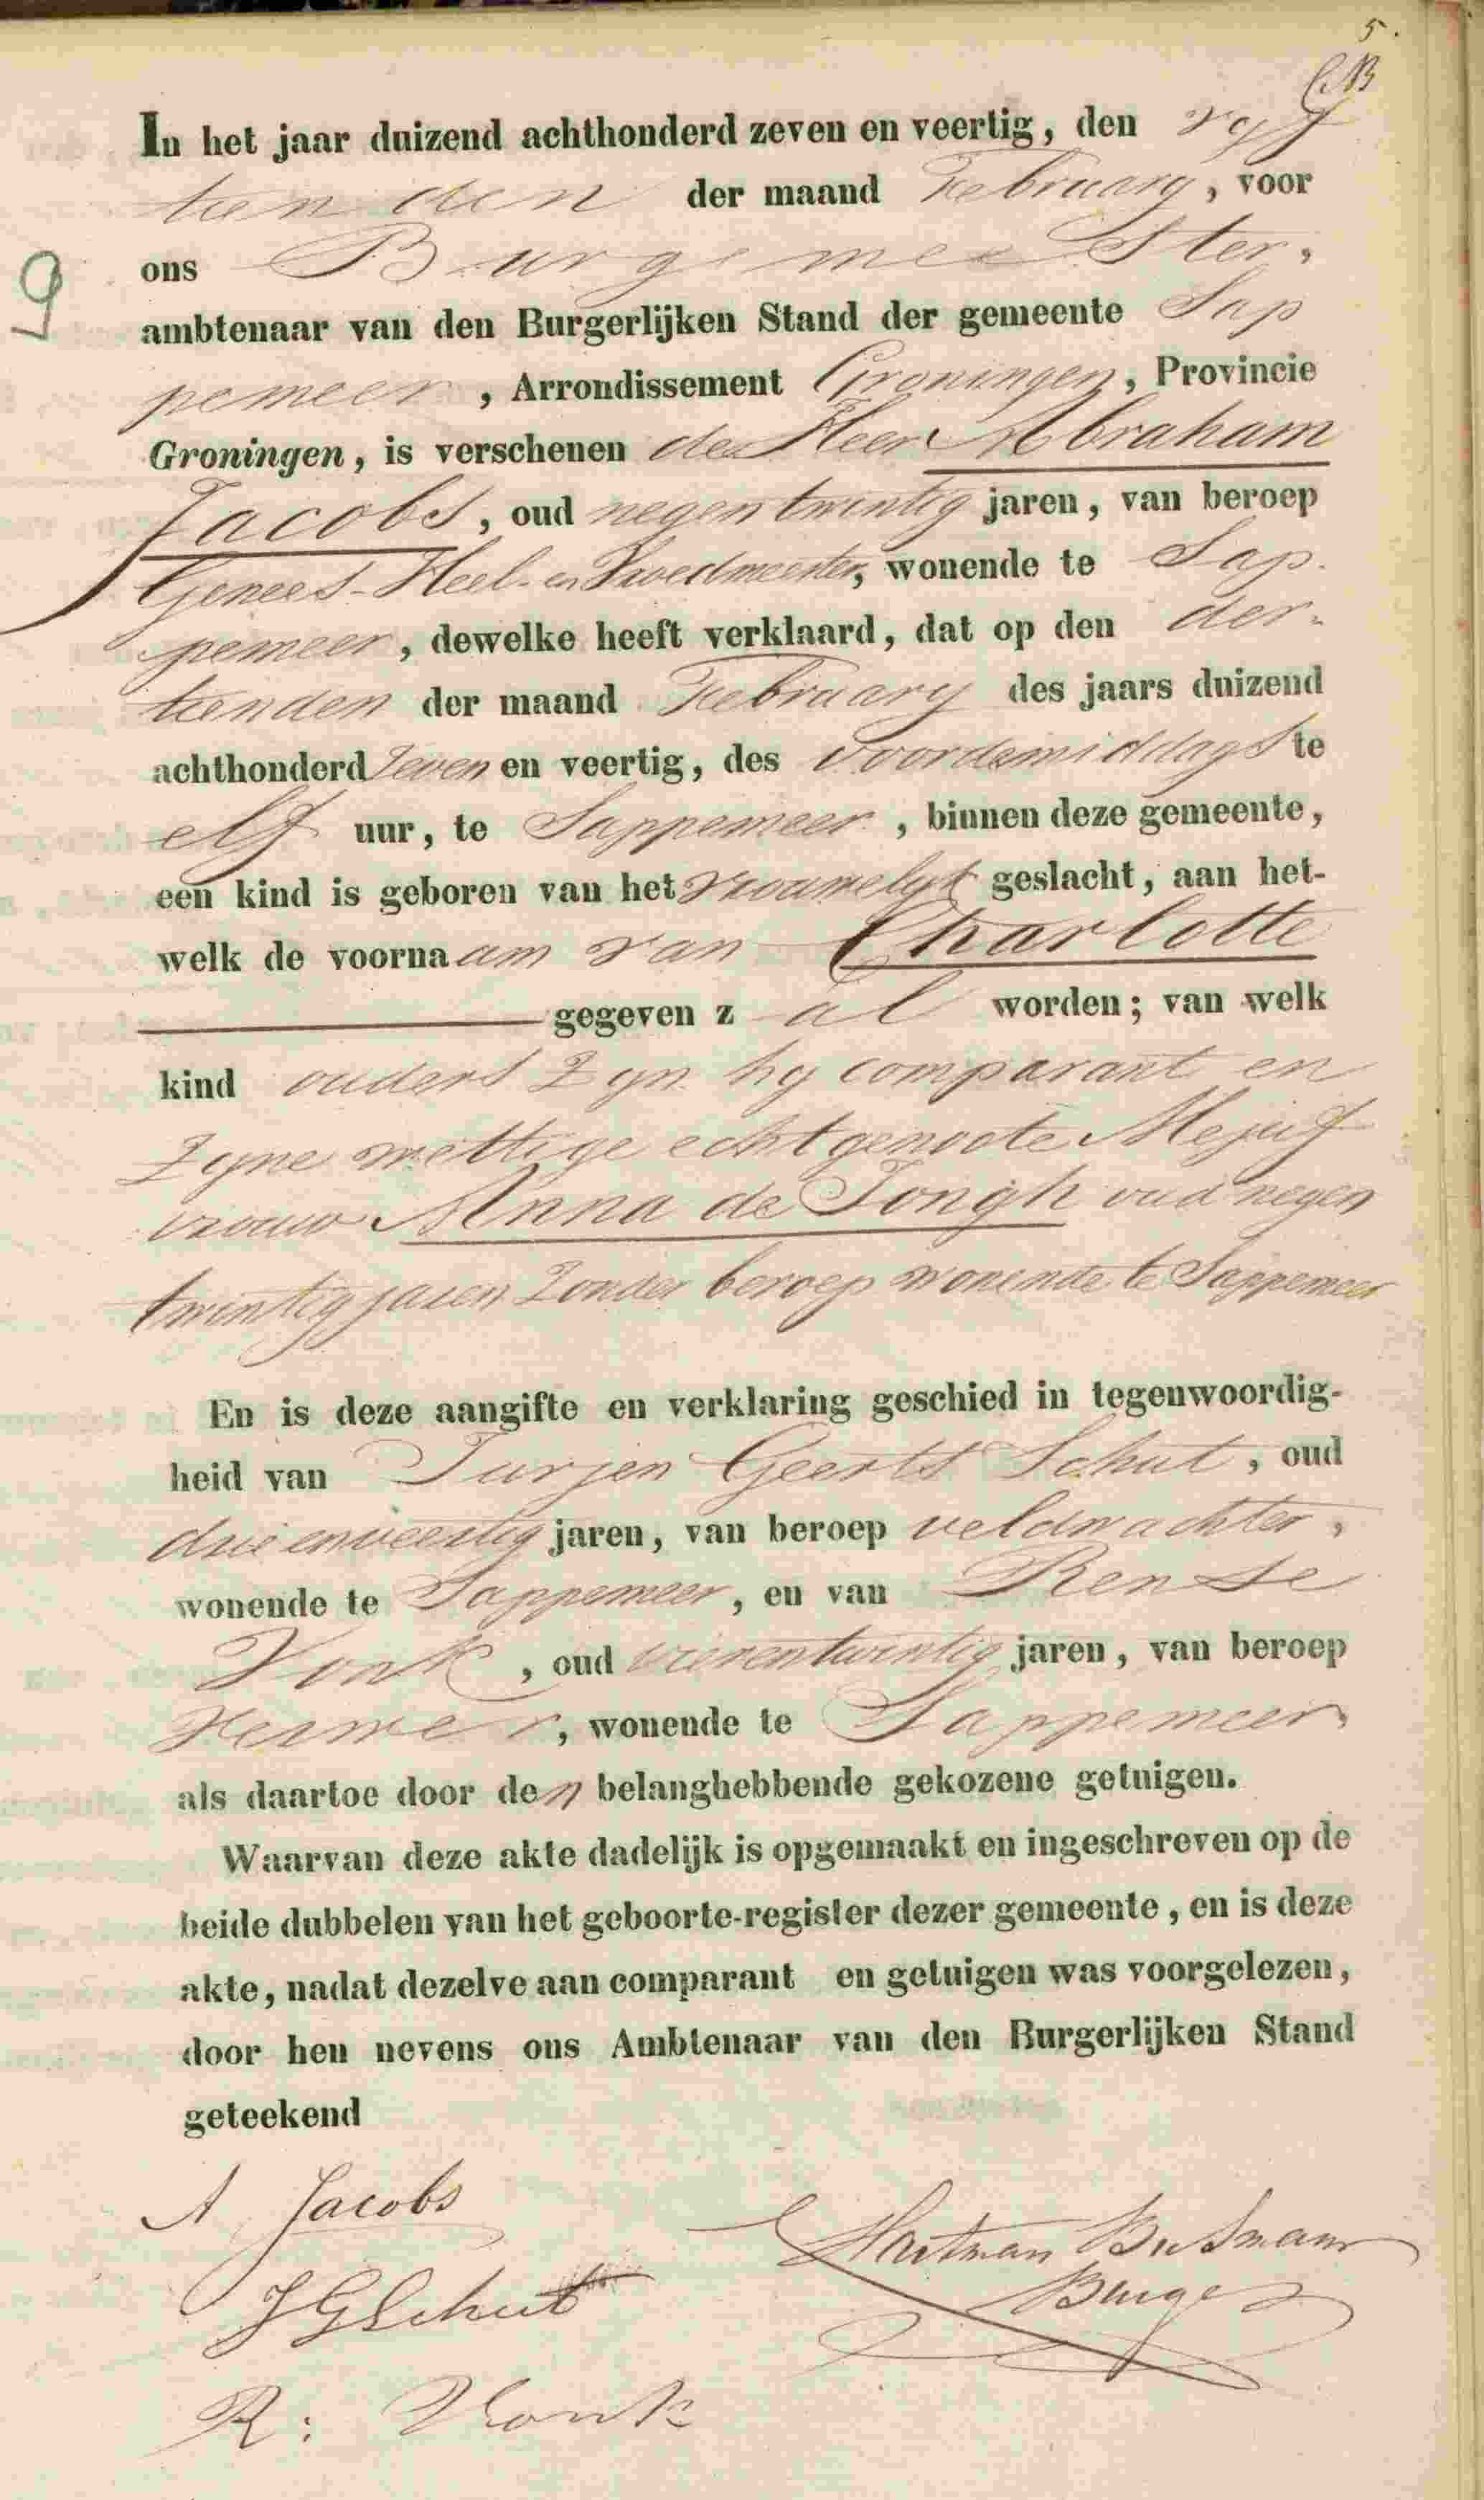 5.
In het jaar duizend achthonderd zeven en veertig, den vyf
tienden der maand February, voor
ons Burgemeester,
9
ambtenaar van den Burgerlijken Stand der gemeente Sap
pemeer, Arrondissement Groningen, Provincie
Groningen, is verschenen de Heer Abraham
Jacobs, oud negentwintig jaren, van beroep
Genees- Heel- en Vroedmeester, wonende te Sap-
pemeer, dewelke heeft verklaard, dat op den der-
tienden der maand February des jaars duizend
achthonderd zeven en veertig, des voordemiddags te
elf uur, te Sappemeer, binnen deze gemeente,
een kind is geboren van het vrouwelyk geslacht, aan het-
welk de voornaam van Charlotte
gegeven zal worden; van welk
kind ouders zyn hy comparant en
zyne wettige echtgenoote Mejuf
vrouw Anna de Jongh oud negen
twintig jaren zonder beroep wonende te Sappemeer
En is deze aangifte en verklaring geschied in tegenwoordig-
heid van Jurjen Geerts Schut, oud
drie en veertig jaren, van beroep veldwachter,
wonende te Sappemeer, en van Rense
Vonk, oud vierentwintig jaren, van beroep
, wonende te Sappemeer,
als daartoe door den belanghebbende gekozene getuigen.
Waarvan deze akte dadelijk is opgemaakt en ingeschreven op de
beide dubbelen van het geboorte-register dezer gemeente, en is deze
akte, nadat dezelve aan comparant en getuigen was voorgelezen,
door hen nevens ons Ambtenaar van den Burgerlijken Stand
geteekend
A. Jacobs
Hartman Busmann
Burge
JGSchut
R: Vonk